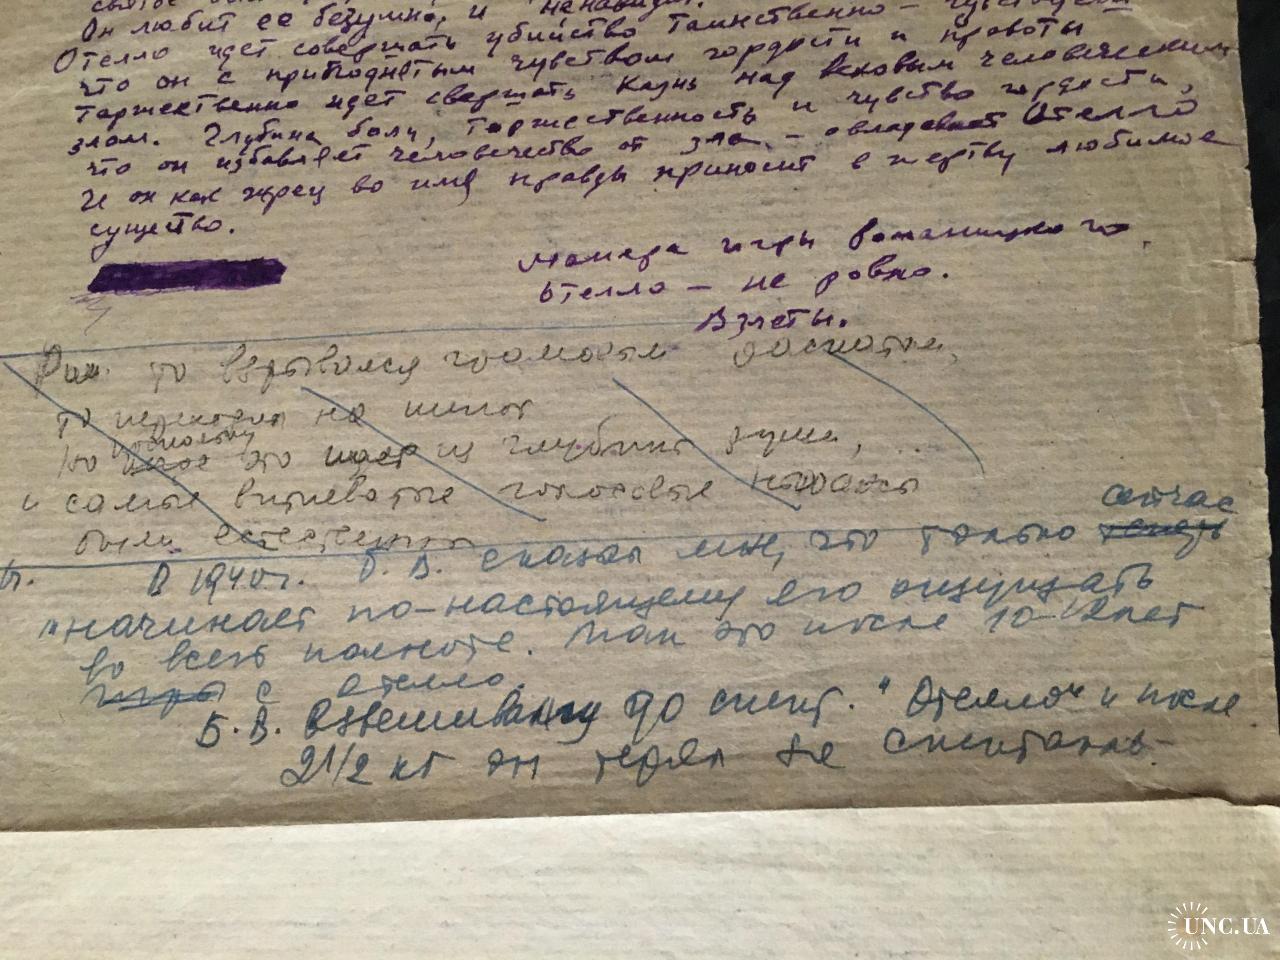 Он любит ее безумно, и ненавидит.
Отелло идет совершать убийство таинственно – чувствуем
что он с приподнятым чувством гордости и правоты
торжественно идет свершать казнь над вековым человеческим
злом. Глубина боли, торжественность и чувство гордости,
что он избавляет человечество от зла – овладевает Отелло
И он как жрец во имя правды приносит в жертву любимое
существо.
Манера игры
Отелло – не ровно.
Взлеты.
то взрывался громовым
то переходил на шепот
но это идет из глубины души,
и самые витиеватые голосовые нюансы
были естественны
сейчас
В 1940 г. Б. В. сказал мне, что только теперь
"начинает по-настоящему его ощущать
во всей полноте. Там это после 10-12 лет
игры с Отелло.
Б. В. до спект. "Отелло" и после
2 1/2 кг он терял за спектакль.
UNC.UA